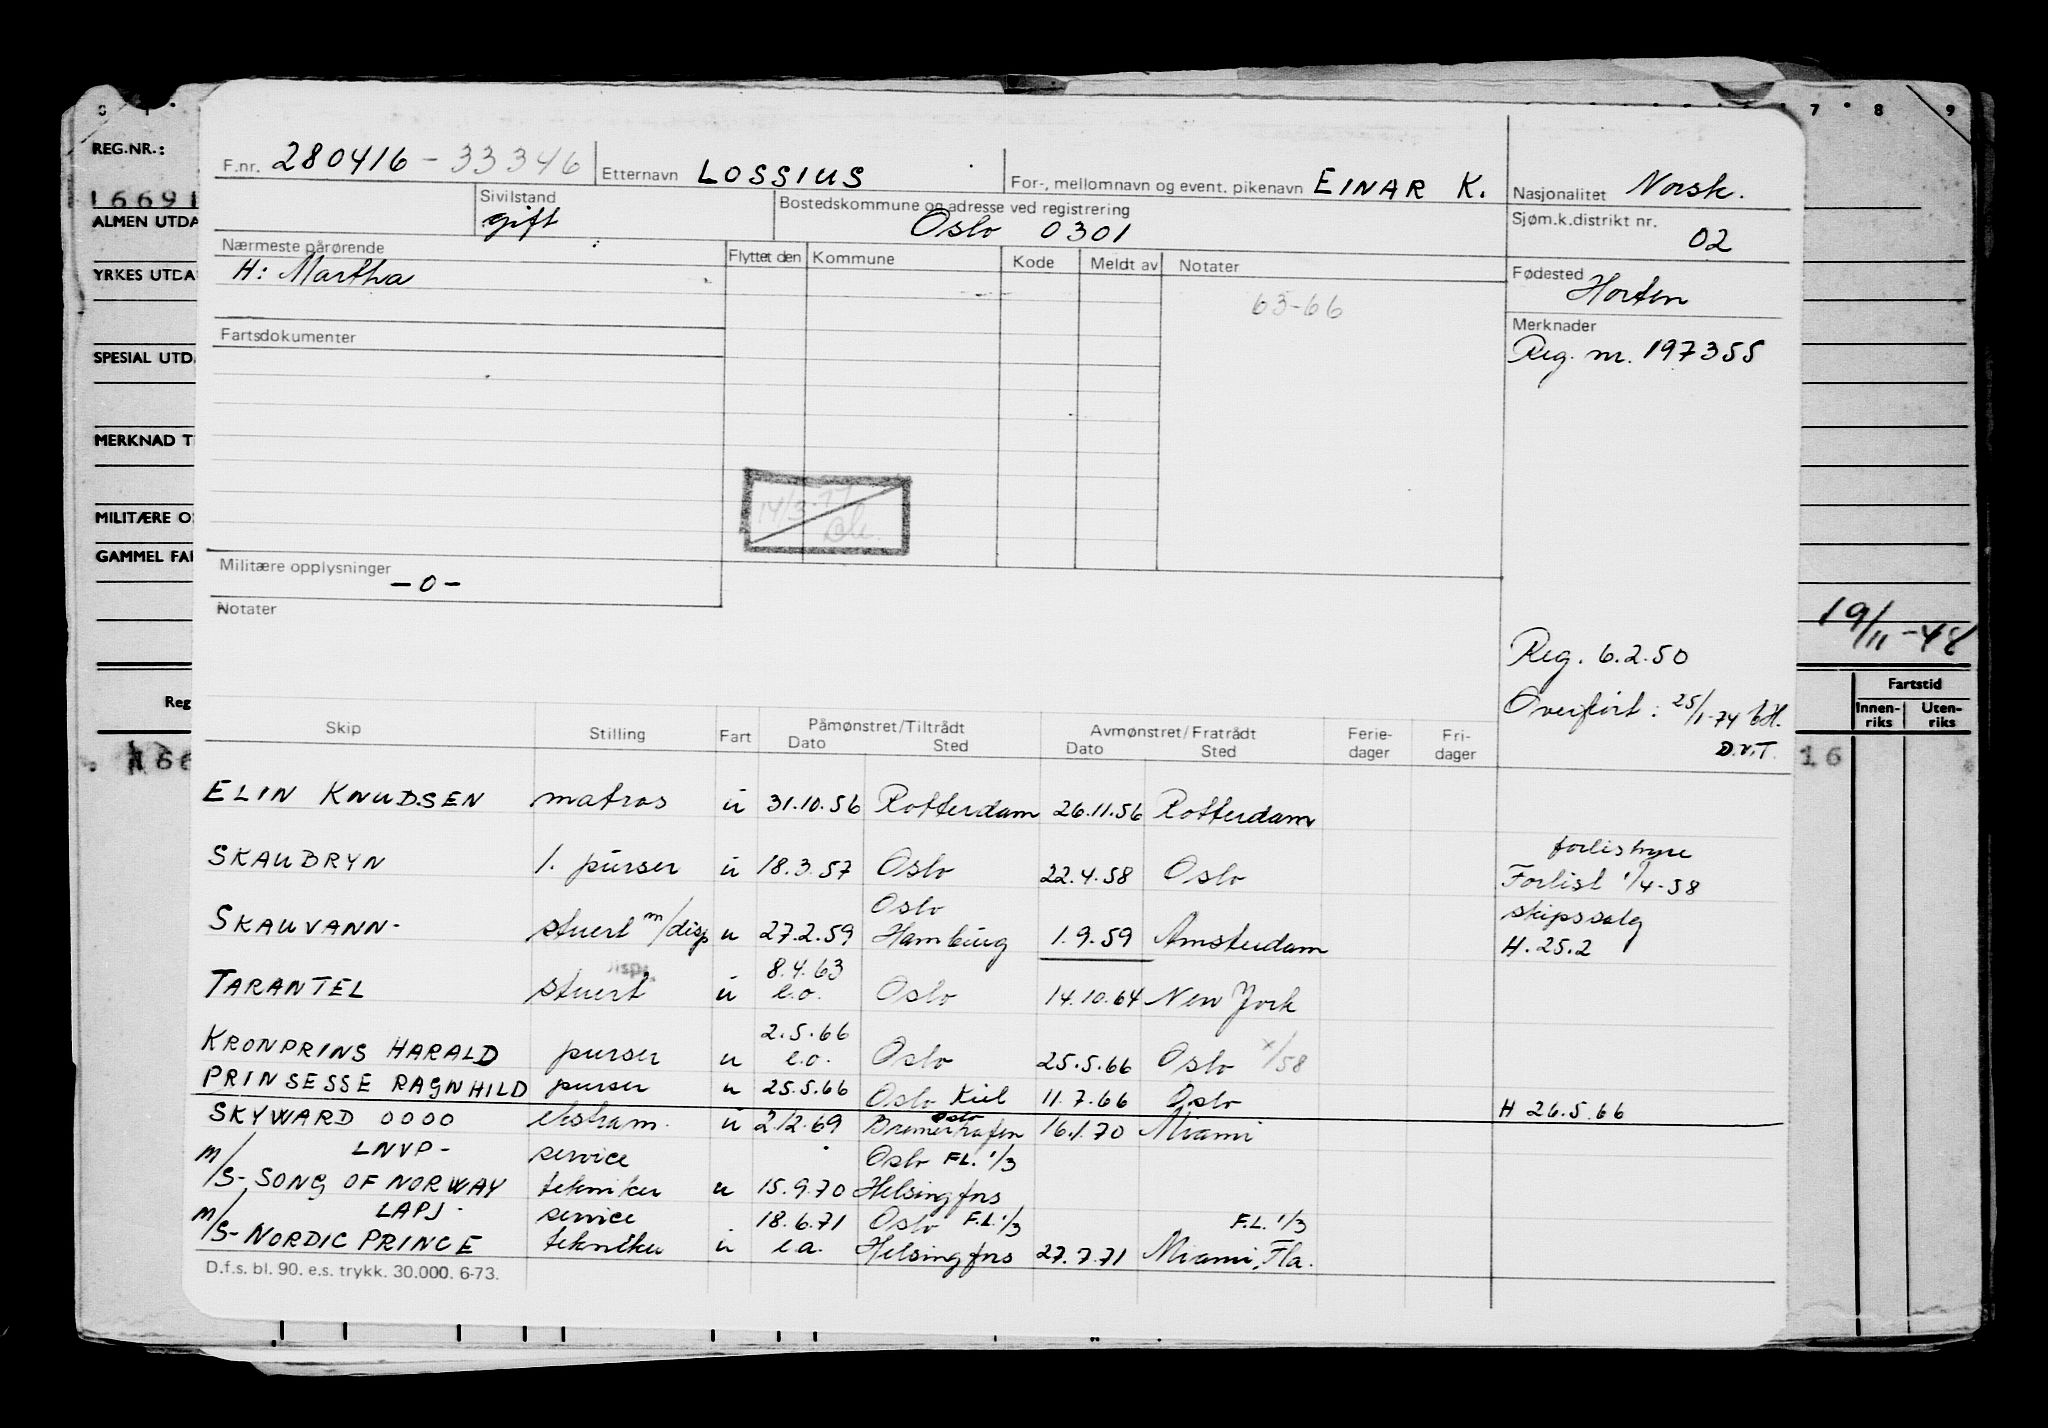 7 8 9
REG.NR.:
16691
ALMEN UTDA
YRKES UTDA
SPESIAL UTD
MERKNAD T
MILITÆRE O
GAMMEL FA
Reg
166
F.nr. 280416-33346 Etternavn LOSSIUS For-, mellomnavn og event. pikenavn EINAR K. Nasjonalitet Norsk.
Sivilstand gift Bostedskommune og adresse ved registrering Oslo 0301 Sjøm.k.distrikt nr. 02
Nærmeste pårørende Flyttet den Kommune Kode Meldt av Notater Fødested Horten
H: Martha
63-66
Fartsdokumenter
Merknader
Reg. nr. 197355
14/3-77
Militære opplysninger
-0-
Notater
19/11-48
Reg. 6.2.50
Overført: 25/1-74 bH.
D.v.T.
Fartstid
Innen-riks Uten-riks
16
Skip Stilling Fart Påmønstret/Tiltrådt Dato Sted Avmønstret/Fratrådt Dato Sted Ferie-dager Fri-dager
ELIN KNUDSEN matros u 31.10.56 Rotterdam 26.11.56 Rotterdam
SKAUBRYN 1. purser u 18.3.57 Oslo 22.4.58 Oslo forlishyre Forlist 1/4-58
SKAUVANN- stuert m/disp u 27.2.59 Oslo Hamburg 1.9.59 Amsterdam skipssalg H. 25.2
TARANTEL stuert disp. u 8.4.63 e.o. Oslo 14.10.64 New York
KRONPRINS HARALD purser u 2.5.66 e.o. Oslo 25.5.66 Oslo x/58
PRINSESSE RAGNHILD purser u 25.5.66 Oslo Kiel 11.7.66 Oslo H 26.5.66
SKYWARD 0000 ekstram. u 2.12.69 Oslo Bremerhafen 16.1.70 Miami
LNVP- service Oslo FL. 1/3
m/S-SONG OF NORWAY tekniker u 15.9.70 Helsingfors
LAPJ- service 18.6.71 Oslo F.L. 1/3 F.L. 1/3
m/S-NORDIC PRINCE tekniker u e.a. Helsingfors 27.7.71 Miami, Fla.
D.f.s. bl. 90. e.s. trykk. 30.000. 6-73.